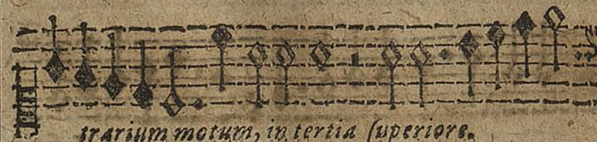 trarium motum, in tertia ſuperiore.